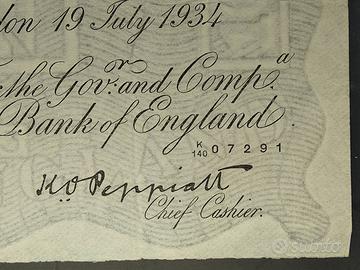 don 19 July 1934
the Govr. and Compa.
Bank of England.
K/140 07291
K.O. Peppiatt
Chief Cashier.
subito